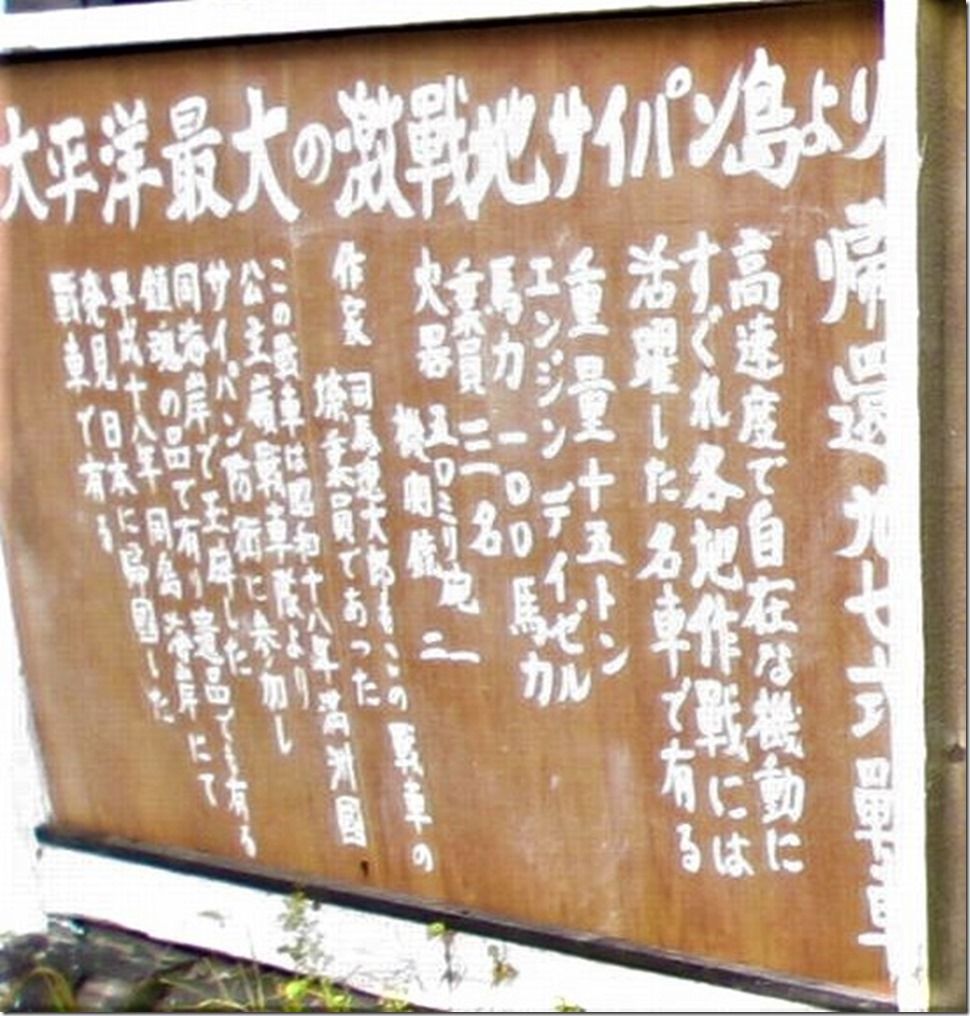 太平洋最大の激戦地サイパン島より
帰還 九七式戦車
高速度で自在な機動に
すぐれ各地作戦には
活躍した名車で有る
重量 十五トン
エンジン デイゼル
馬力 一〇〇馬力
乗員 三名
火器 五〇ミリ砲 二
機関銃
作家 司馬遼太郎もこの戦車の
搭乗員であった
この戦車は昭和十八年 満洲國
公主嶺戦車隊より
サイパン防衛に参加し
同海岸で玉砕した
鎮魂の品で有り 遺品でも有る
平成十八年 同島海岸にて
発見 日本に帰國した
戦車で有る